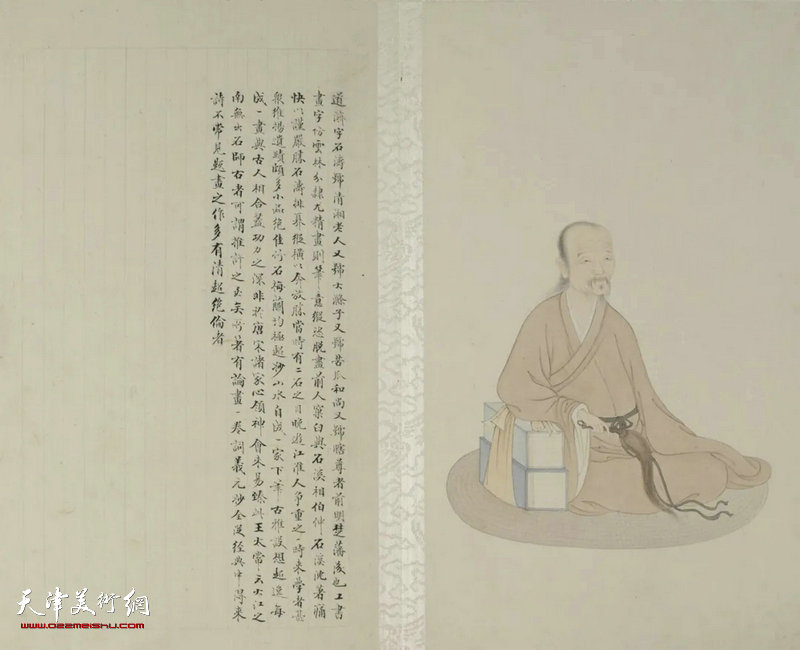 道濟字石濤號清湘老人又號大滌子又號苦瓜和尚又號瞎尊者前明楚藩後也工書
畫字仿雲林分隸尤精畫則筆意縱恣脫盡前人窠臼與石溪相伯仲石溪沈著痛
快以謹嚴勝石濤排奡縱橫以奔放勝當時有二石之目晚遊江淮人爭重之一時來學者甚
衆維揚遺蹟頗多小品絶佳竹石梅蘭均極超妙山水自成一家下筆古雅設想超逸每
成一畫與古人相合蓋功力之深非於唐宋諸家心領神會未易臻此王太常云大江之
南無出石師右者可謂推許之至矣 著有論畫一卷詞義元妙全從經典中得來
詩不常見題畫之作多有清超絶倫者
天津美術網
www.022meishu.com